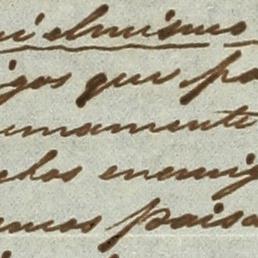 el mismo
igos que pa
umamente
chos enemig
emos paisa